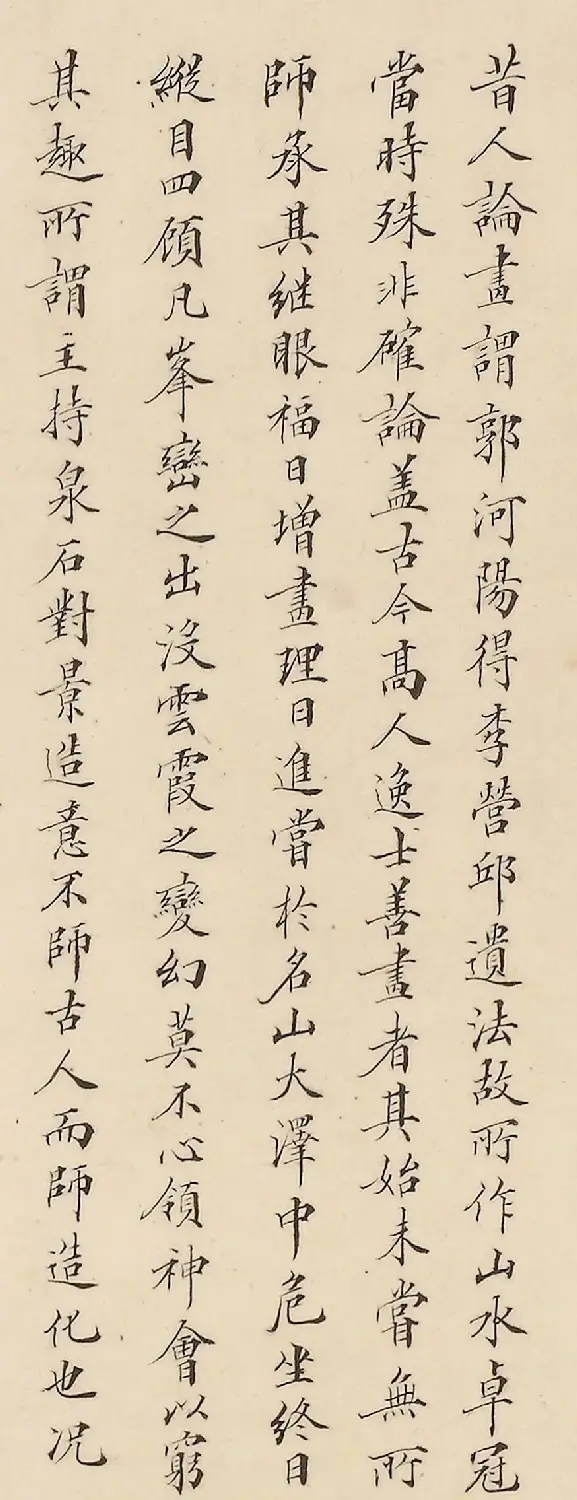 昔人論畫謂郭河陽得李營邱遺法故所作山水卓冠
當時殊非確論盖古今髙人逸士善畫者其始未嘗無所
師承其继眼福日增畫理日進嘗於名山大澤中危坐终日
縱目四顧凡峯巒之出没雲霞之變幻莫不心領神會以窮
其趣所謂主持泉石對景造意不師古人而師造化也况